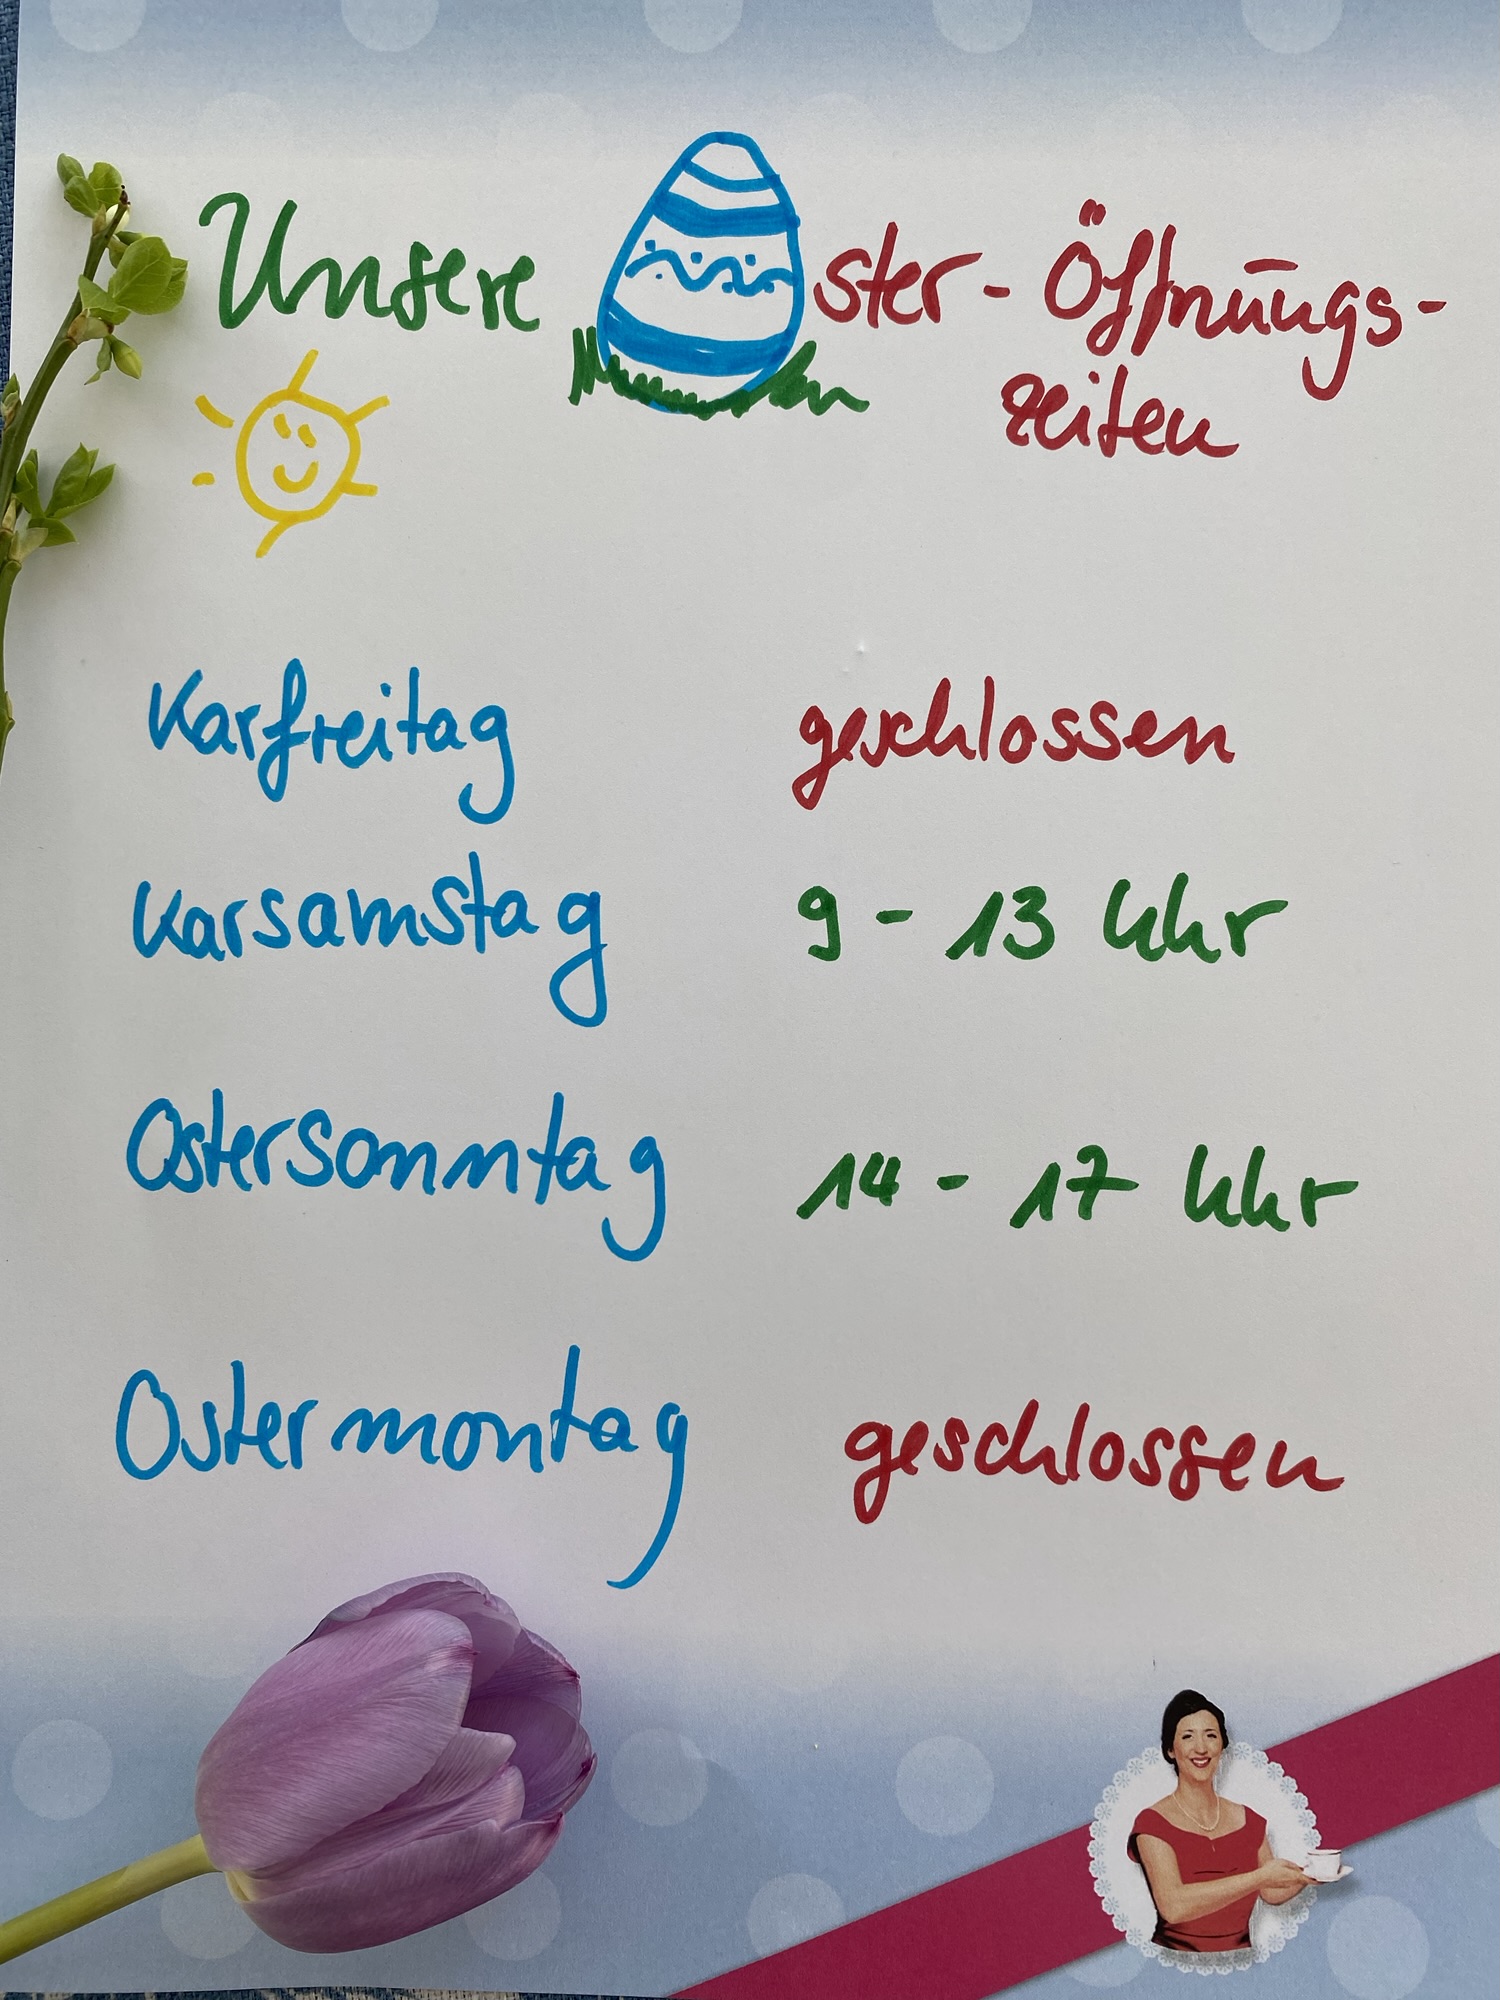 Unsere Oster-Öffnungs-
zeiten
Karfreitag geschlossen
Karsamstag 9 - 13 Uhr
Ostersonntag 14 - 17 Uhr
Ostermontag geschlossen